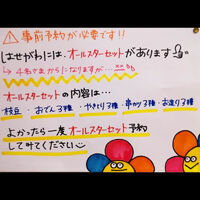 ⚠ 事前予約が必要です!!
はせがわには、オールスターセットがあります
↳ 4名さまからになりますが…
オールスターセットの内容は…
枝豆・おでん3種・やきとり3種・串かつ3種・お造り3種
よかったら一度オールスターセット予約
してみてください